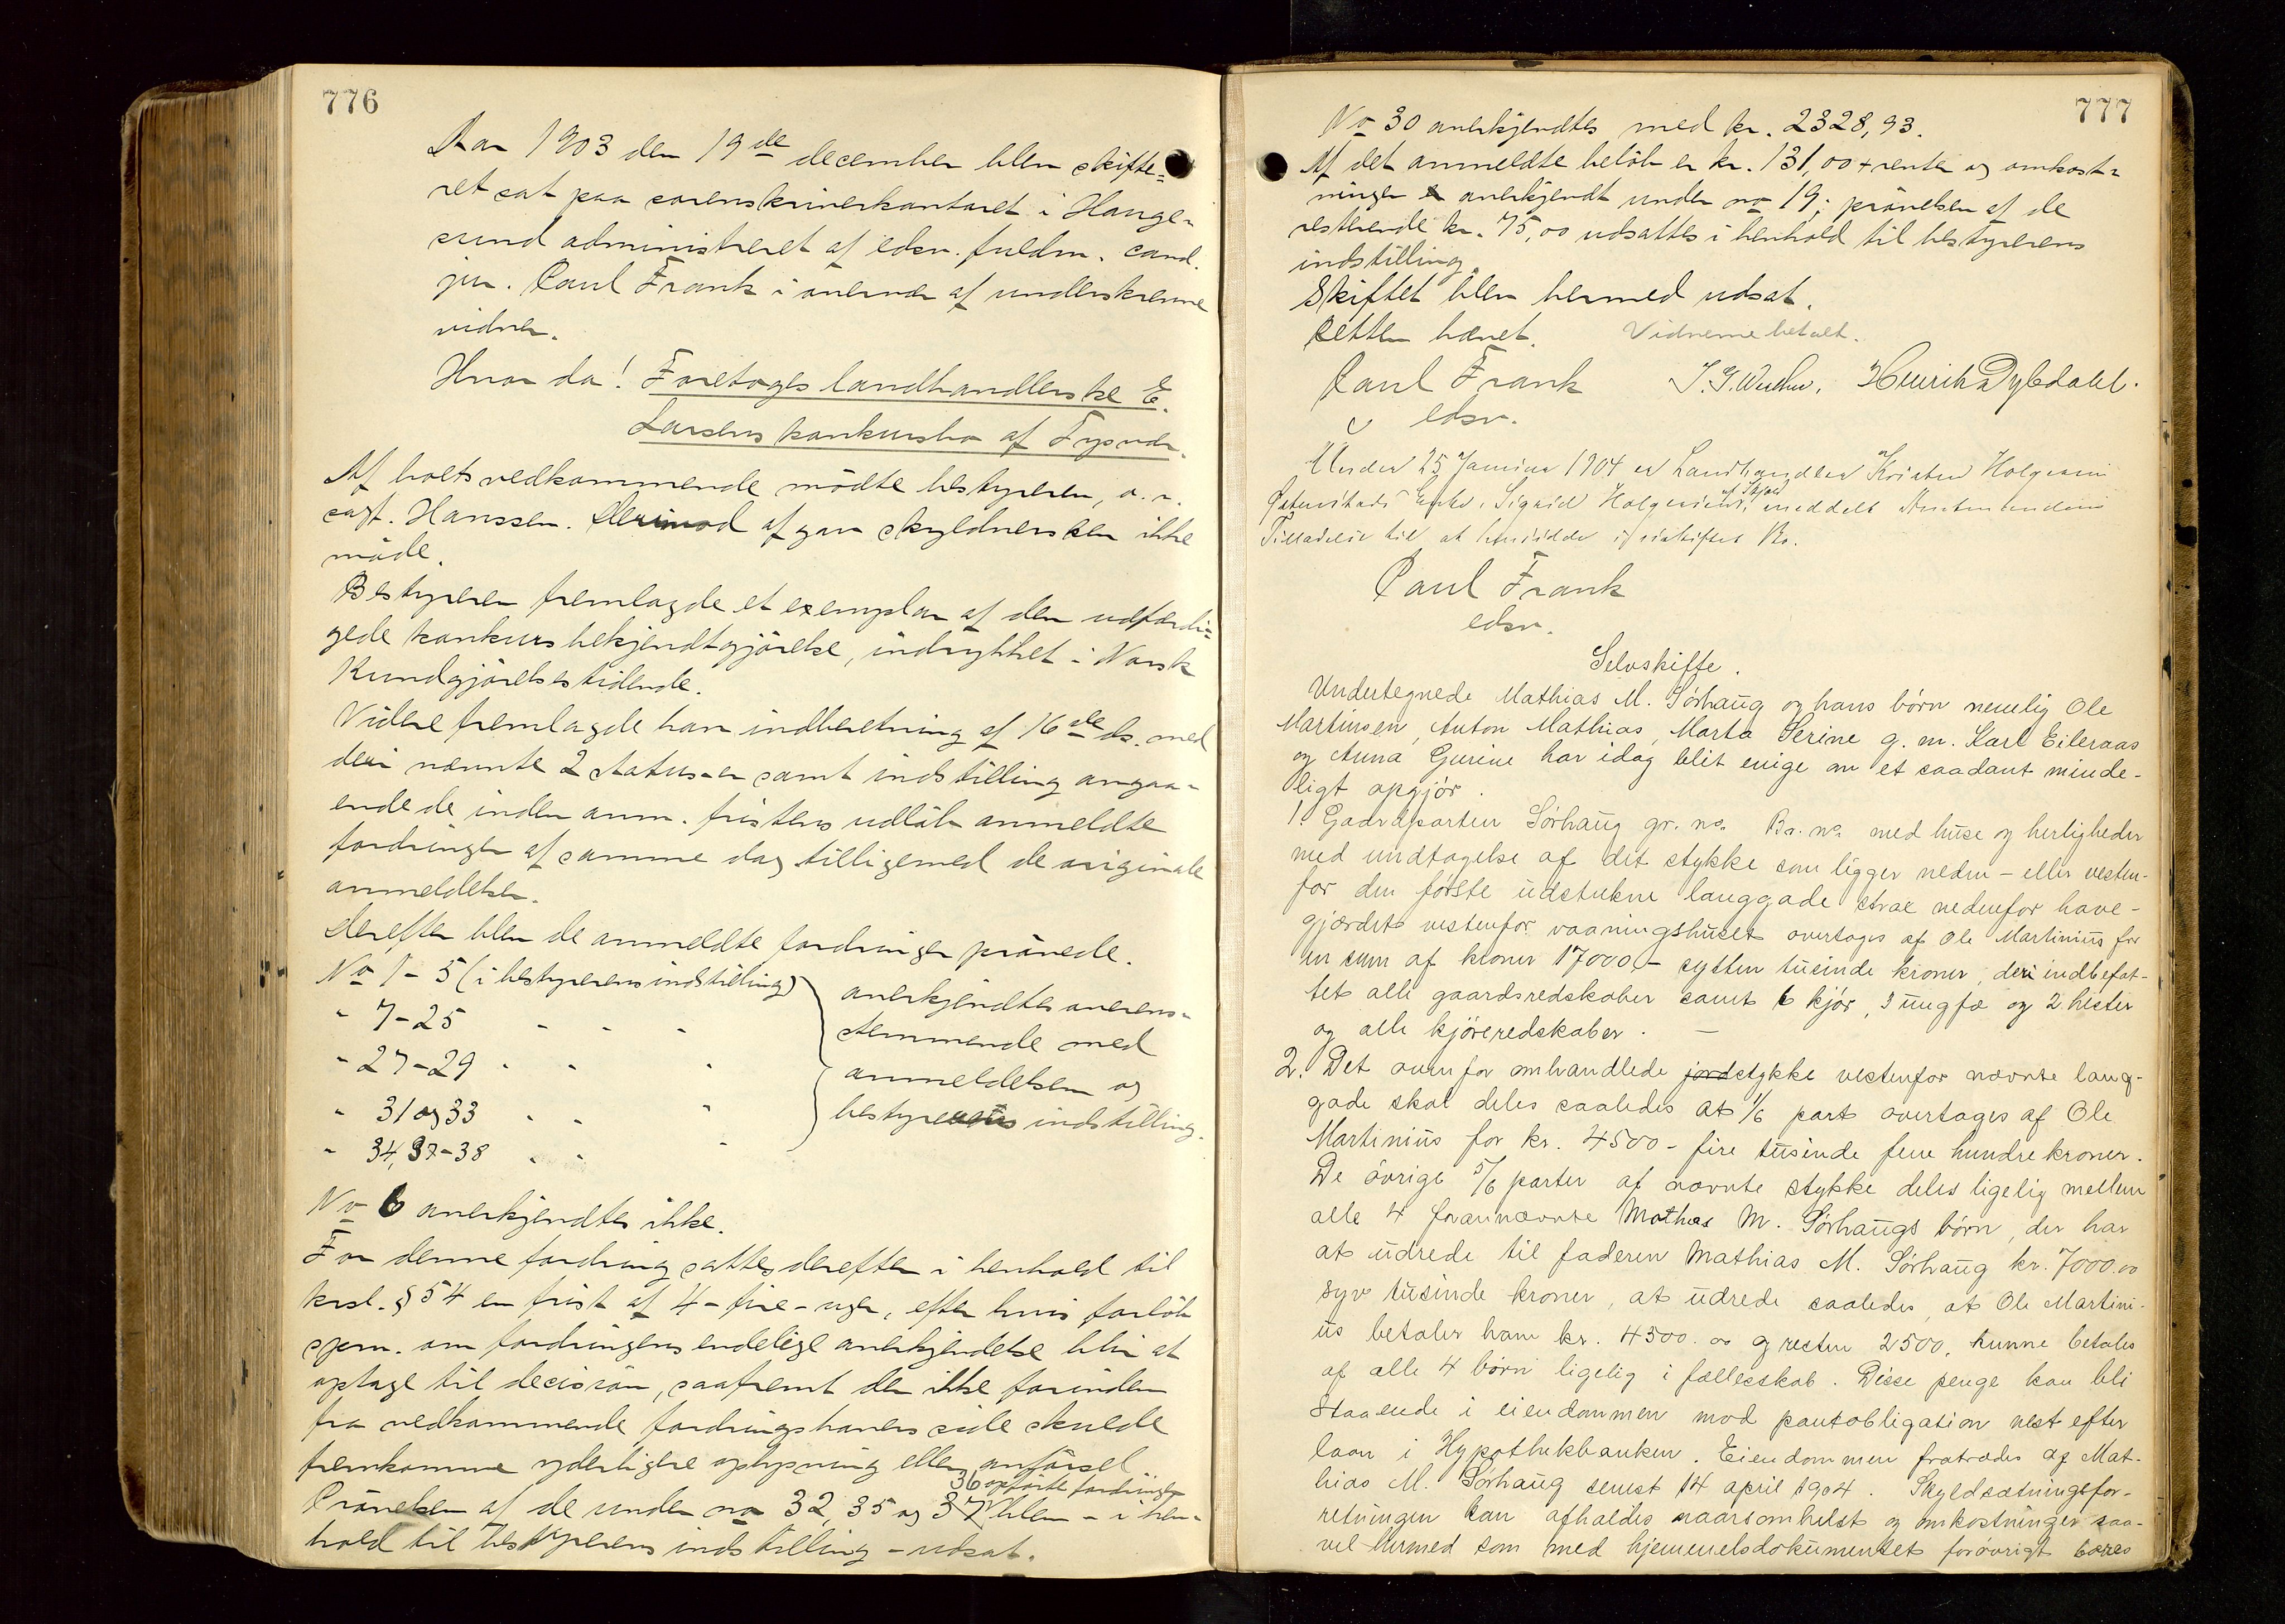 776
Aar 1903 den 19de december blev skifte=
ret sat paa sorenskriverkontoret i Hauge-
sund administreret af edsv. fuldm. cand.
jur. Paul Frank i overvær af underskrevne
vidner.
Hvor da! Foretoges landhandlerske E.
Larsens konkursbo af Tysvær.
Af boets vedkommende mødte bestyreren, o.r.
sagf. Hanssen. Derimod afgav skyldnersken ikke
møde.
Bestyreren fremlagde et exemplar af den udfærdi=
gede konkursbekjendtgjørelse, indrykket i Norsk
Kundgjørelsestidende.
Videre fremlagde han indberetning af 16de ds. med
deri nævnte 2 status-er samt indstilling angaa-
ende de inden anm. fristens udløb anmeldte
fordringer af samme dag tilligemed de originale
anmeldelser.
Derefter blev de anmeldte fordringer prøvede.
No 1-5 (i bestyrerens indstilling)
" 7-25 " " "
" 27-29 " " "
" 31 og 33 " " "
" 34, 37-38 " " "
anerkjendtes overens-
stemmende med
anmeldelsen og
bestyrerens indstilling.
No 6 anerkjendtes ikke.
For denne fordring sattes derefter i henhold til
krsl. § 54 en frist af 4-fire-uger, efter hvis forløb
spm. om fordringens endelige anerkjendelse blir at
optage til decision, saafremt der ikke forinden
fra vedkommende fordringshavers side skulde
fremkomme yderligere oplysning eller anførsel
36 opførte fordringer
Prøvelsen af de under no 32, 35 og 37 blev - i hen-
hold til bestyrerens indstilling - udsat.
777
No 30 anerkjendtes med kr. 2328,93.
Af det anmeldte beløb er kr. 131,00 + renter og omkost-
ninger anerkjendt under no 19; prøvelsen af de
resterende kr. 75,00 udsattes i henhold til bestyrerens
indstilling.
Skiftet blev hermed udsat.
Retten hævet. Vidnerne betalt.
Paul Frank Henrik Dybdahl.
edsv.
Under 25 Januar 1904 er Landhandler Kristen Holgersen
Enke, Sigrid Holgersen, meddelt
af Skjold
Tilladelse til at hensidde i uskiftet Bo.
Paul Frank
edsv.
Selvskifte.
Undertegnede Mathias M. Sørhaug og hans børn nemlig Ole
Martinsen, Anton Mathias, Marta Serine g. m. Karl Eileraas
og Anna Gurine har idag blit enige om et saadant minde-
ligt opgjør.
1. Gaardparten Sørhaug gr. no. Br. no. med huse og herligheder
med undtagelse af det stykke som ligger neden- eller vesten-
for den første udstukne langgade strax nedenfor have-
gjærdet vestenfor vaaningshuset overtages af Ole Martinius for
en sum af kroner 17000,- sytten tusinde kroner, deri indbefat-
tet alle gaardsredskaber samt 6 kjør, 3 ungfæ og 2 hester
og alle kjøreredskaber. —
2. Det ovenfor omhandlede jordstykke vestenfor nævnte lang-
gade skal deles saaledes at 1/6 part overtages af Ole
Martinius for kr. 4500- fire tusinde fem hundre kroner.
De øvrige 5/6 parter af nævnte stykke deles ligelig mellem
alle 4 forannævnte Mathias M. Sørhaugs børn, der har
at udrede til faderen Mathias M. Sørhaug kr. 7000.00
syv tusinde kroner, at udrede saaledes, at Ole Martini-
us betaler ham kr. 4500.00 og resten 2500, kunne betales
af alle 4 børn ligelig i fællesskab. Disse penge kan bli
staaende i eiendommen mod pantobligation næst efter
laan i Hypothekbanken. Eiendommen fratrædes af Mat-
hias M. Sørhaug senest 14 april 1904. Skyldsætningsfor-
retningen kan afholdes naarsomhelst og omkostninger saa-
vel hermed som med hjemmelsdokumentet forøvrigt bæres